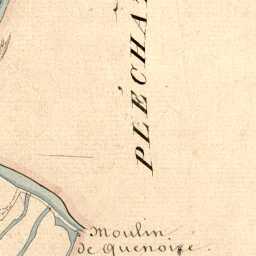 PLÉCHA
Moulin
de Quenoise.